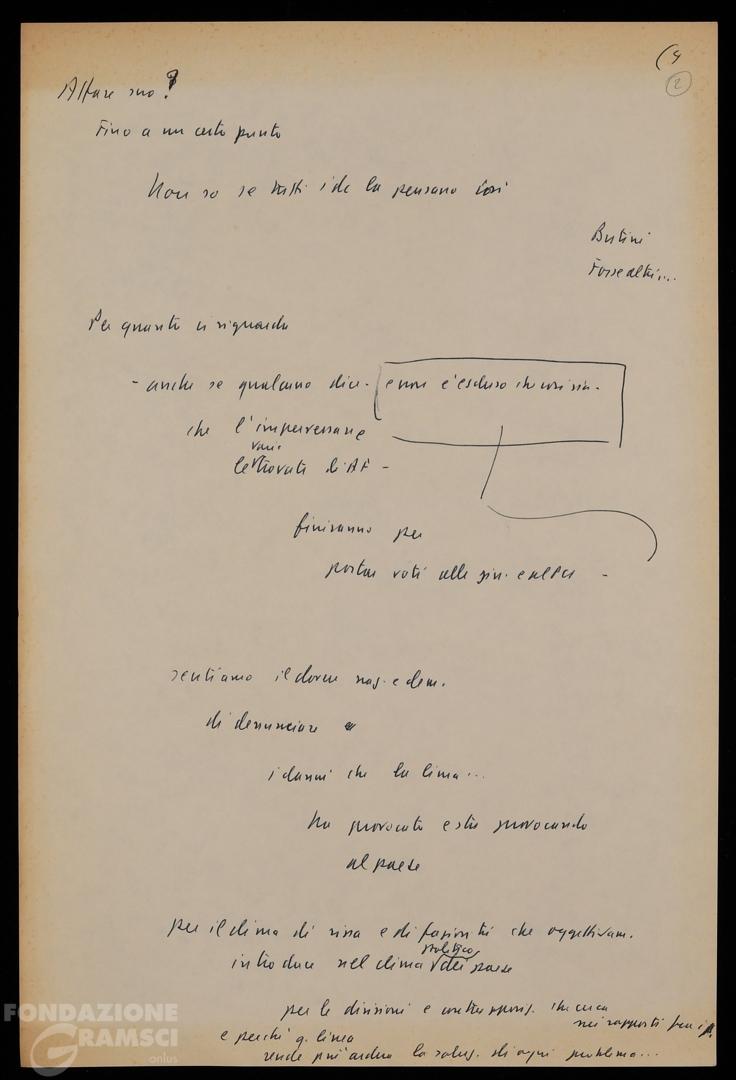 (4
2
Affare suo?
Fino a un certo punto
Non so se tutti i dc la pensano così
Forse altri...
Per quanto ci riguarda
- anche se qualcuno dice - e non è escluso che così sia -
che l'imperversare
varie
le trovate di AF -
finiranno per
portare voti alle sin. e al PCI -
sentiamo il dovere naz. e dem.
di denunciare
i danni che la linea...
ha provocato e sta provocando
al paese
per il clima di rissa e di faziosità che oggettivam.
politico
introduce nel clima del paese
per le divisioni e contrappos. che crea
nei rapporti fra i p.
e perché q. linea
rende più ardua la soluz. di ogni problema...
FONDAZIONE
GRAMSCI
onlus